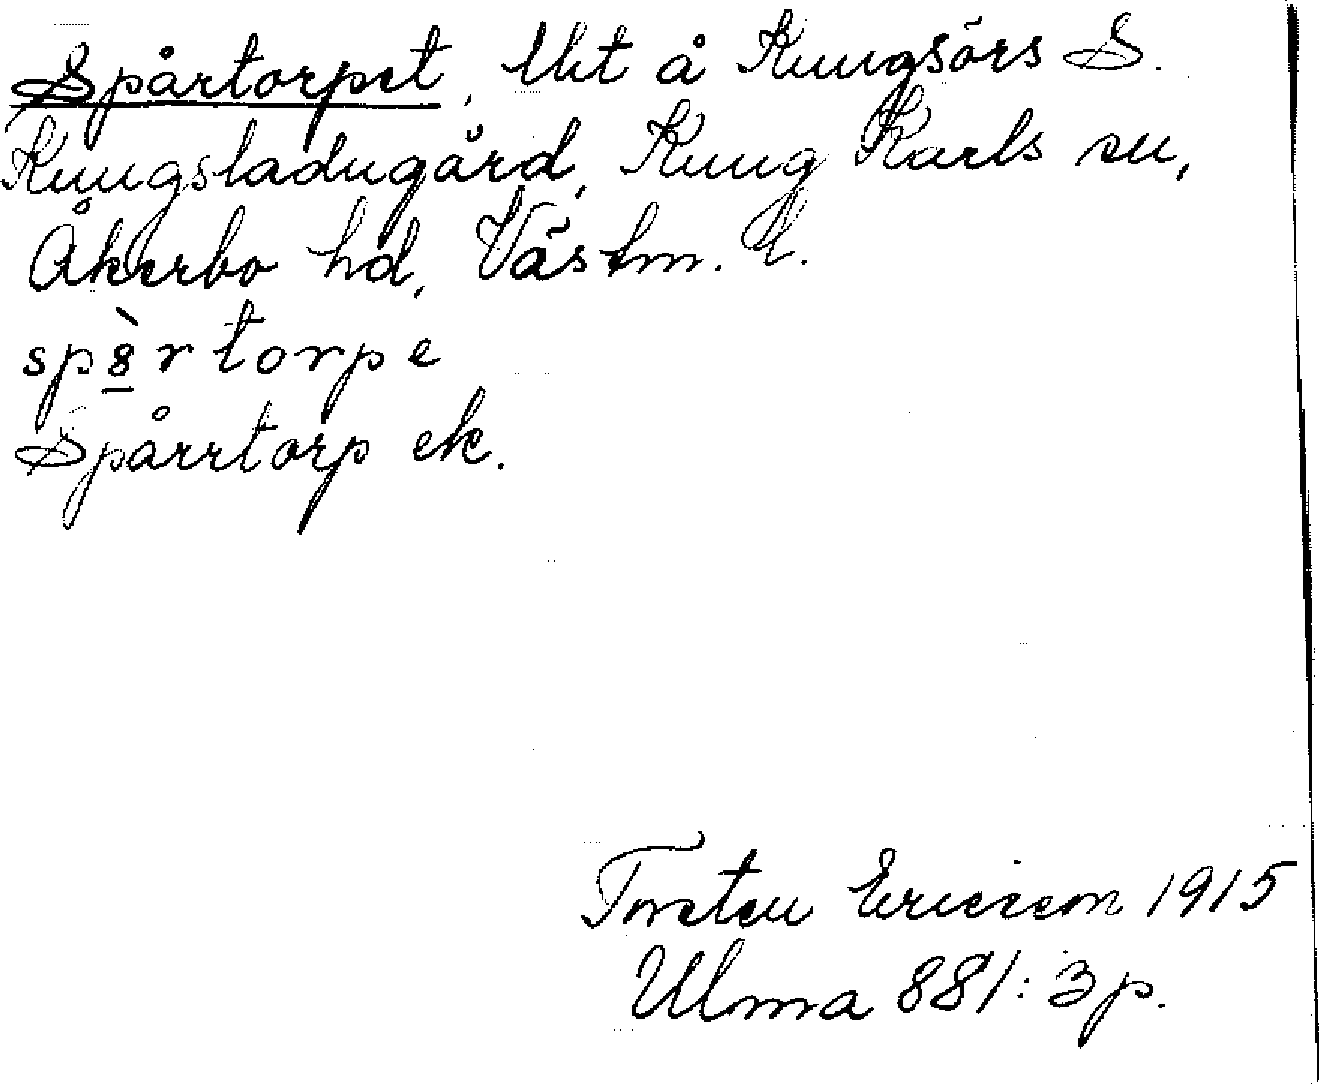 Spårtorpet, lht å Kungsörs S.
Kungsladugård, Kung Karls sn,
Åkerbo hd, Västm. l.
sp8̲̀rtorpe
Spårrtorp ek.
Torsten Ericsson 1915
Ulma 881:3 p.